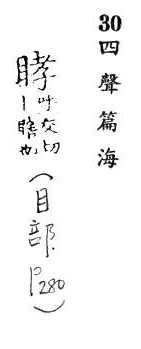 30
四聲篇海
呼交切
｜瞎也
(目部. P280)